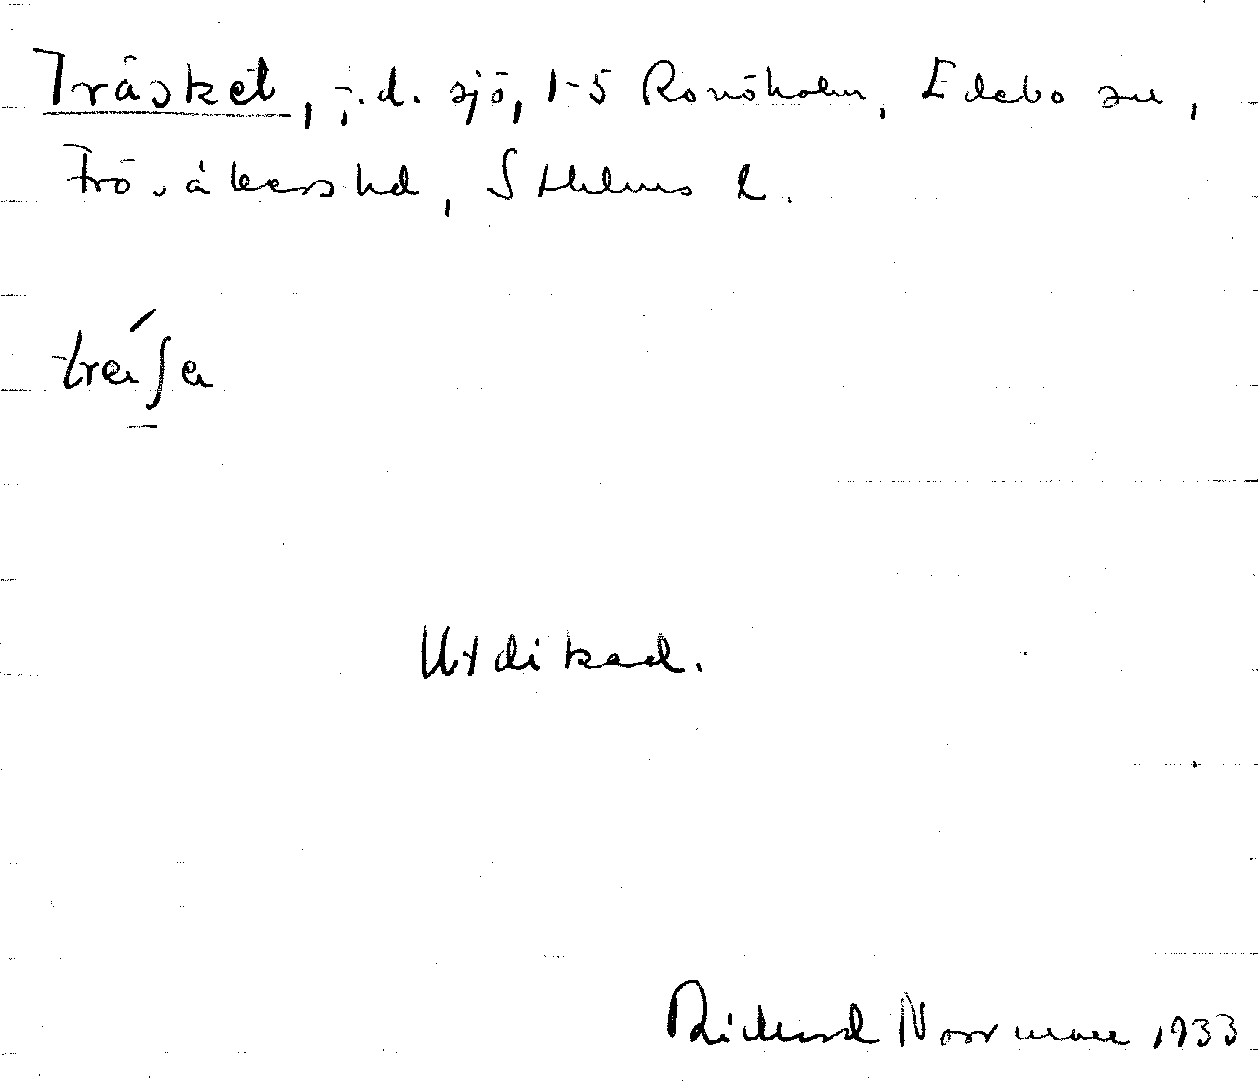 Träsket, f.d. sjö, 1-5 Ronöholm, Edebo sn,
Frö.åkers hd, Sthlms l.
träʃa
Utdikad.
Rickard Norrman 1933